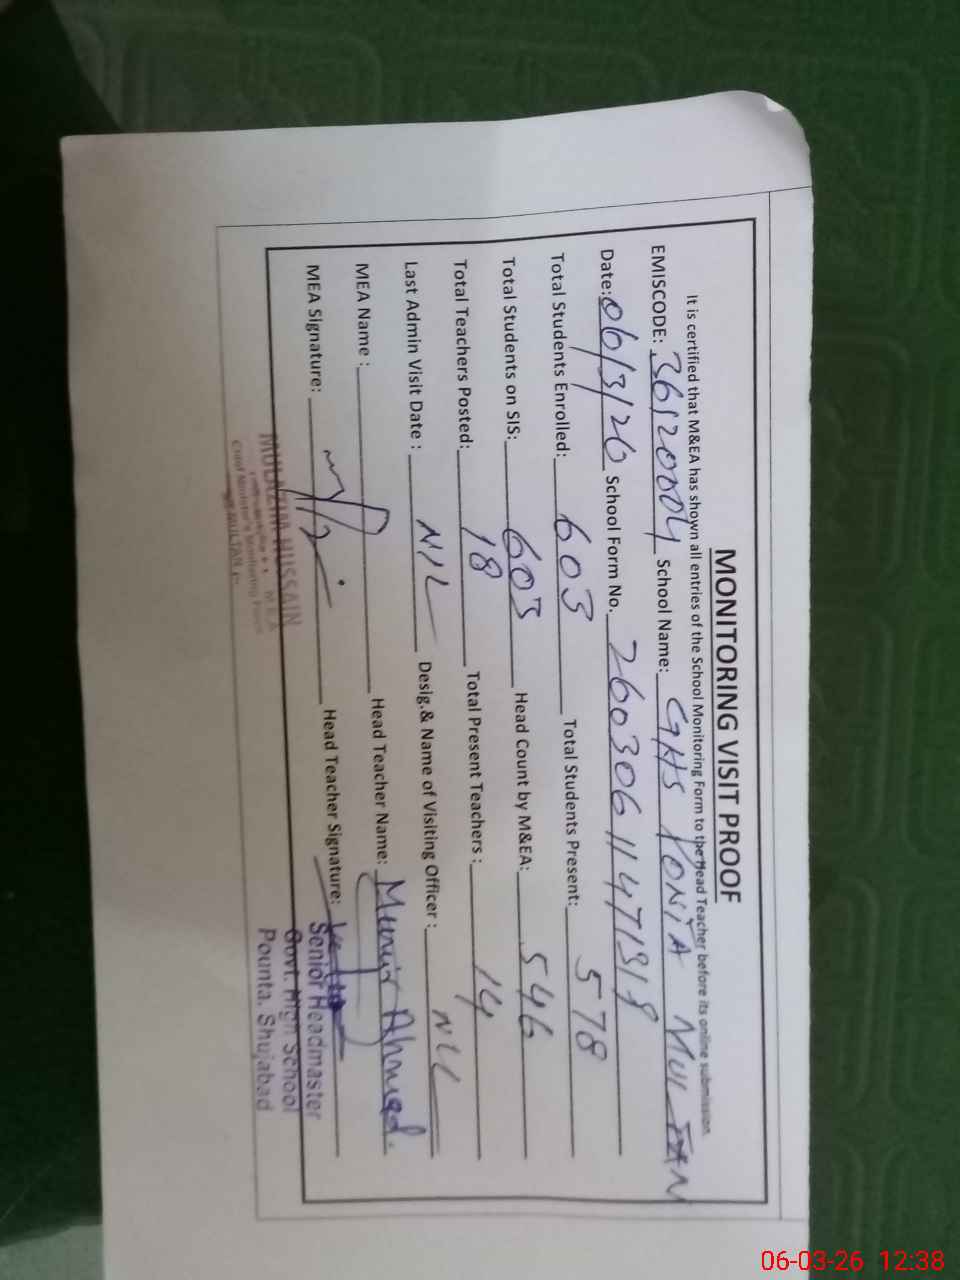 MONITORING VISIT PROOF
It is certified that M&EA has shown all entries of the School Monitoring Form to the Head Teacher before its online submission.
EMISCODE: 36120004 School Name: GHS PONTA MULTAN
Date: 06/3/26 School Form No. 26030611471319
Total Students Enrolled: 603 Total Students Present: 578
Total Students on SIS: 603 Head Count by M&EA: 546
Total Teachers Posted: 18 Total Present Teachers : 14
Last Admin Visit Date : NIL Desig.& Name of Visiting Officer : NIL
MEA Name : Head Teacher Name: Munir Ahmed.
MEA Signature: Head Teacher Signature:
MULAZIM HUSSAIN
MEA
Chief Minister's Monitoring Force
MULTAN
Senior Headmaster
Govt. High School
Pounta, Shujabad
06-03-26 12:38